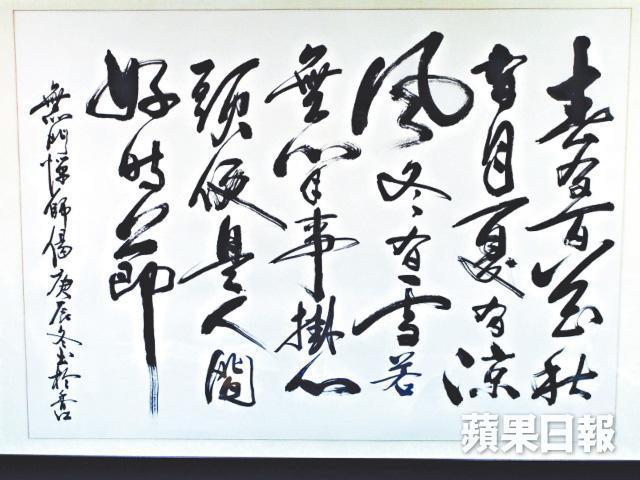 春有百花秋
有月夏有涼
風冬有雪若
無閒事掛心
頭便是人間
好時節
無門禪師偈庚辰冬書於香
蘋果日報